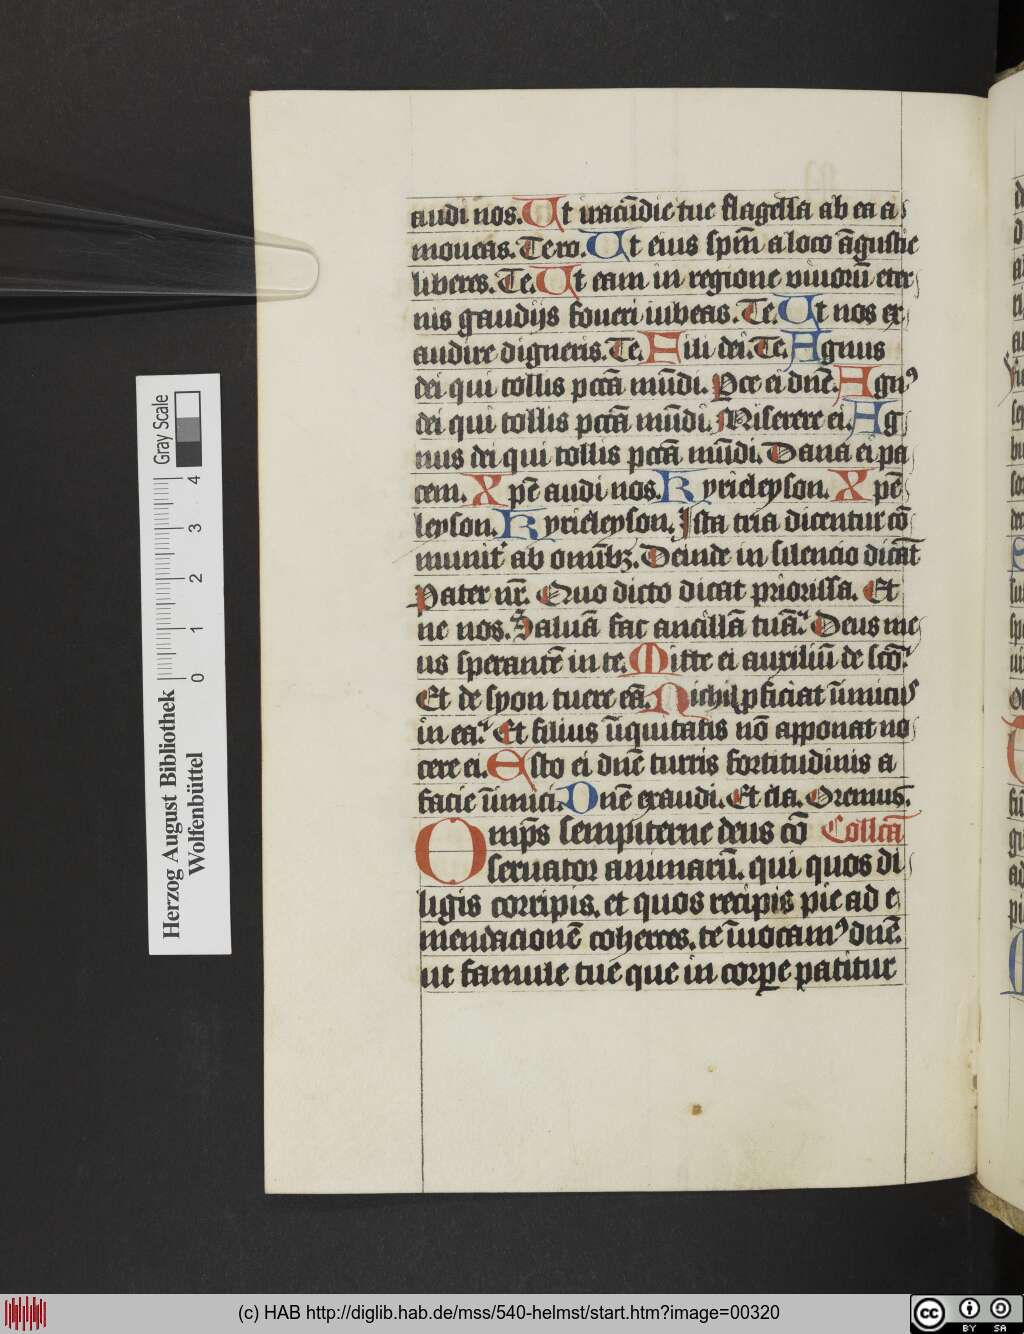 audi nos. Ut iracūdie tue flagella ab ea a
moueas. Te ro. Ut eius spm̄ a loco āgustie
liberes. Te. Ut eam in regione uiuorū eter
nis gaudijs foueri iubeas. Te. Ut nos ex
audire digneris. Te. Fili dei. Te. Agnus
dei qui tollis pctā mūdi. Pce ei dn̄e. Agnꝰ
dei qui tollis pctā mūdi. Miserere ei. Ag
nus dei qui tollis pctā mūdi. Dana ei pa
cem. Xpē audi nos. Kyrieleyson. Xpē
leyson. Kyrieleyson. Ista tria dicentur cō
munit᷑ ab omībꝫ. Deinde in silencio dicāt
Pater nr̄. Quo dicto dicat priorissa. Et
ne nos. Saluā fac ancillā tuā. Deus me
us sperantē in te. Mitte ei auxiliū de scō.
Et de syon tuere eā. Nichil ꝓficiat īimicus
in ea. Et filius īiquitatis nō apponat no
cere ei. Esto ei dn̄e turris fortitudinis a
facie īimici. Dn̄e exaudi. Et cla. Oremus.
Omp̄s sempiterne deus cō Collcā
seruator animarū. qui quos di
ligis corripis. et quos recipis pie ad e
mendacionē coherces. te īuocamꝰ dn̄e.
ut famule tue que in corꝑe patitur
Herzog August Bibliothek
Wolfenbüttel
0 1 2 3 4
Gray Scale
(c) HAB http://diglib.hab.de/mss/540-helmst/start.htm?image=00320
cc BY SA